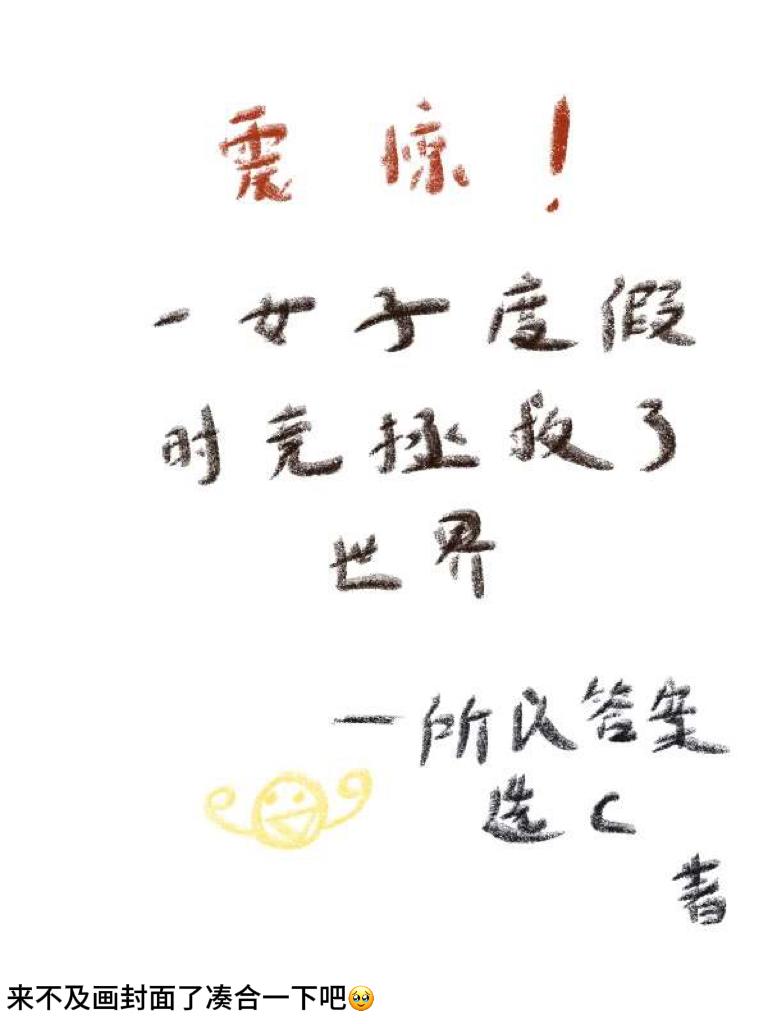 震惊！
一女子度假
时竟拯救了
世界
一所以答案
选C
著
来不及画封面了凑合一下吧🥹